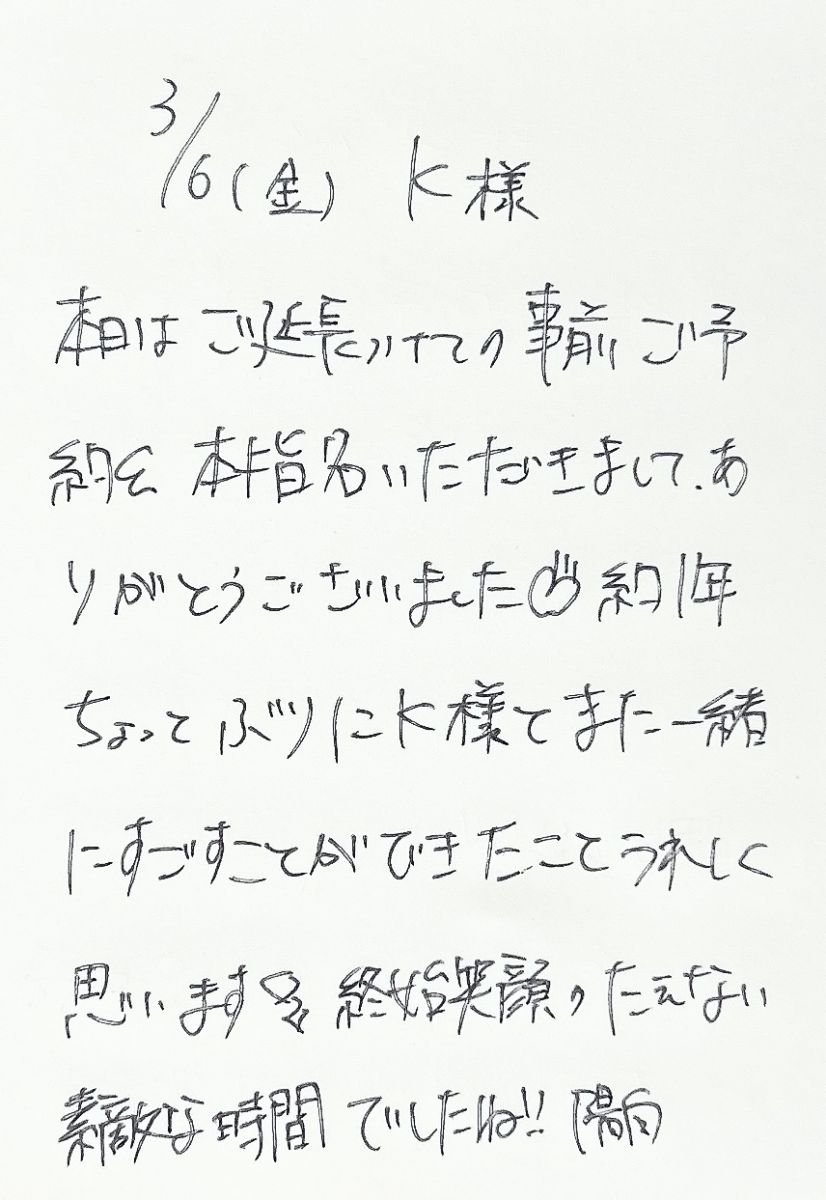 3/6(金) K様
本日はご延長つけての事前ご予
約を本指名いただきまして、あ
りがとうございました 約1年
ちょっとぶりにK様とまた一緒
にすごすことができたことうれしく
思います 終始笑顔のたえない
素敵な時間でしたね!! 陽向